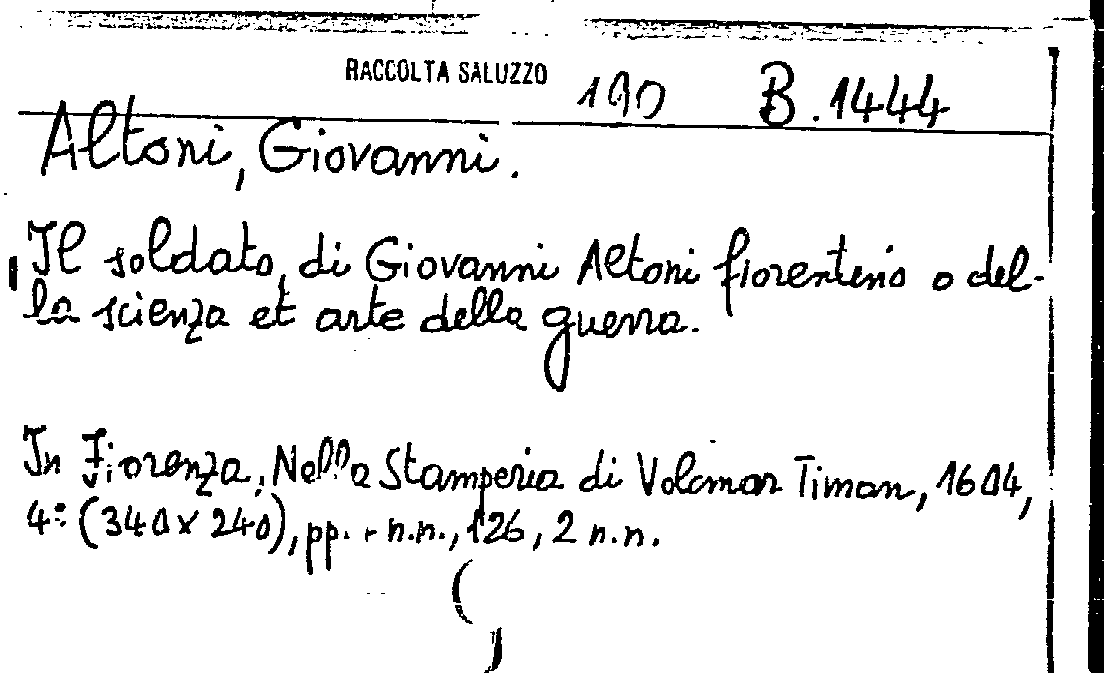 RACCOLTA SALUZZO 190 B.1444
Altoni, Giovanni.
Il soldato, di Giovanni Altoni fiorentino o del-
la scienza et arte della guerra.
In Fiorenza, Nella Stamperia di Volcmar Timan, 1604,
4º (340 x 240), pp. n.n., 126, 2 n.n.